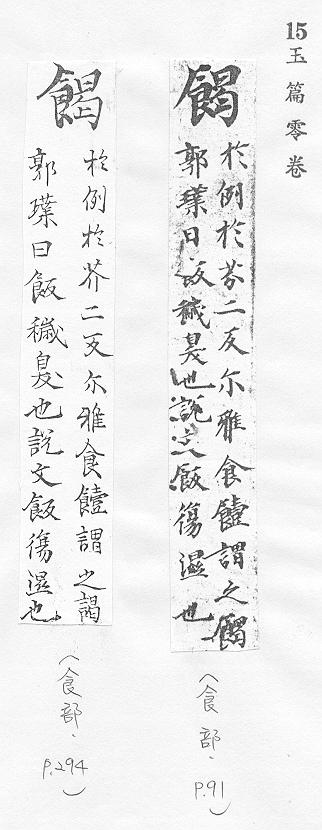 15 玉篇零卷
餲
於例於芥二反尔雅食饐謂之餲
郭璞曰飯穢臭也說文飯傷濕也
(食部、P.91)
餲
於例於芥二反尔雅食饐謂之謁
郭璞曰飯穢臭也說文飯傷濕也
(食部、P.294)